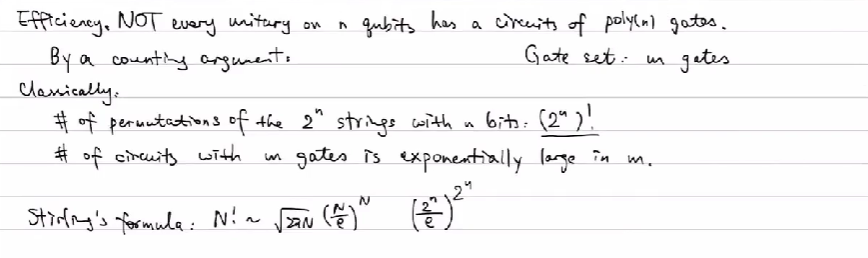 Efficiency. NOT every unitary on n qubits has a circuits of poly(n) gates.
By a counting argument: Gate set: m gates
Classically.
# of permutations of the 2^n strings with n bits: (2^n)!
# of circuits with m gates is exponentially large in m.
Stirling's formula: N! ~ √2πN (N/e)^N (2^n/e)^2^n